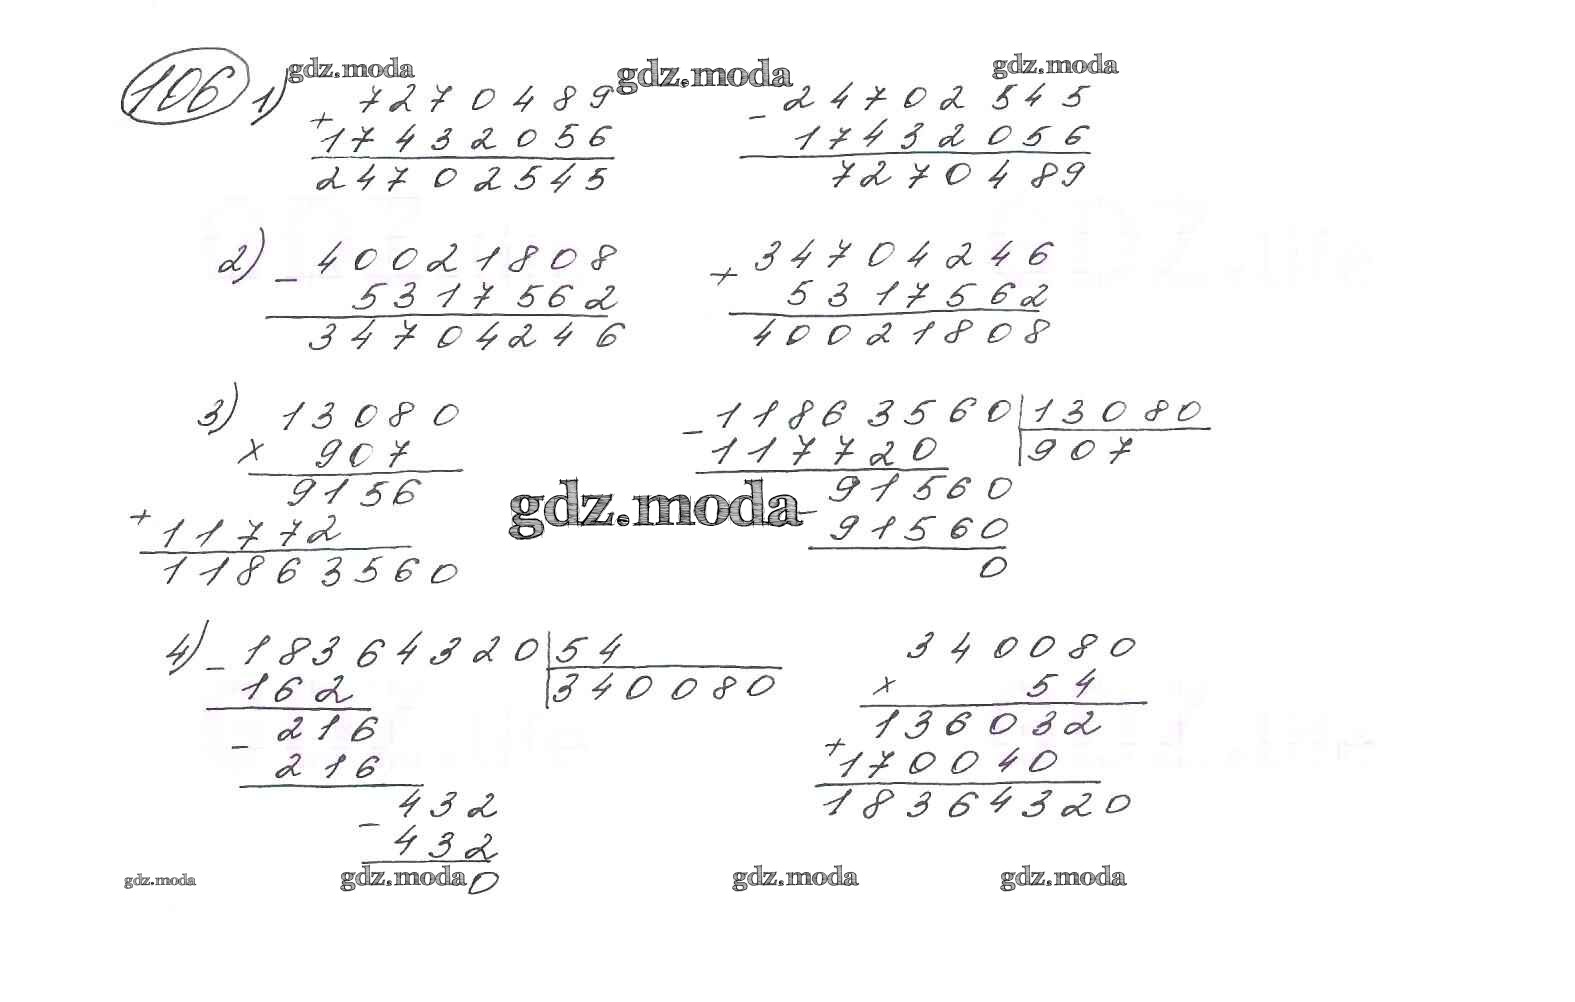 106 1) gdz.moda gdz.moda gdz.moda
7270489 - 24702545
+ 17432056 17432056
24702545 7270489
2) - 40021808 + 34704246
5317562 5317562
34704246 40021808
3) 13080 - 118635 60 | 13080
x 907 117720 | 907
9156 gdz.moda - 91560
+ 11772 91560
11863560 0
4) - 18364320 | 54 340080
162 | 340080 x 54
- 216 136032
216 + 170040
- 432 18364320
432
gdz.moda gdz.moda 0 gdz.moda gdz.moda